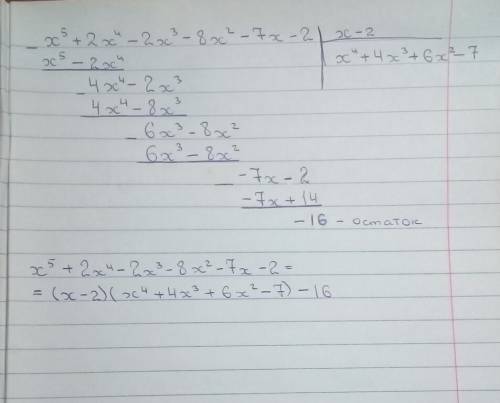 x⁵ + 2x⁴ - 2x³ - 8x² - 7x - 2 | x - 2
x⁵ - 2x⁴ | x⁴ + 4x³ + 6x² - 7
- 4x⁴ - 2x³
4x⁴ - 8x³
- 6x³ - 8x²
6x³ - 8x²
- -7x - 2
-7x + 14
-16 - остаток
x⁵ + 2x⁴ - 2x³ - 8x² - 7x - 2 =
= (x - 2)(x⁴ + 4x³ + 6x² - 7) - 16